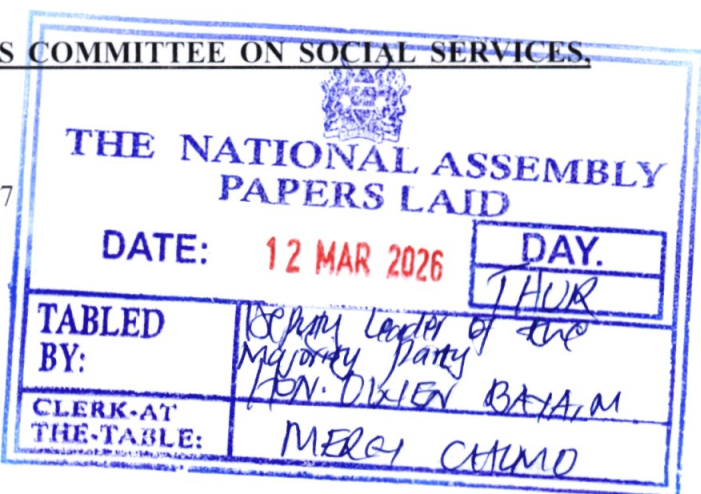 S COMMITTEE ON SOCIAL SERVICES,
THE NATIONAL ASSEMBLY
PAPERS LAID
7
DATE: 12 MAR 2026
DAY.
THUR
TABLED BY:
Deputy Leader of the
Majority Party
HON.
CLERK-AT THE-TABLE:
MERCY CHUMO